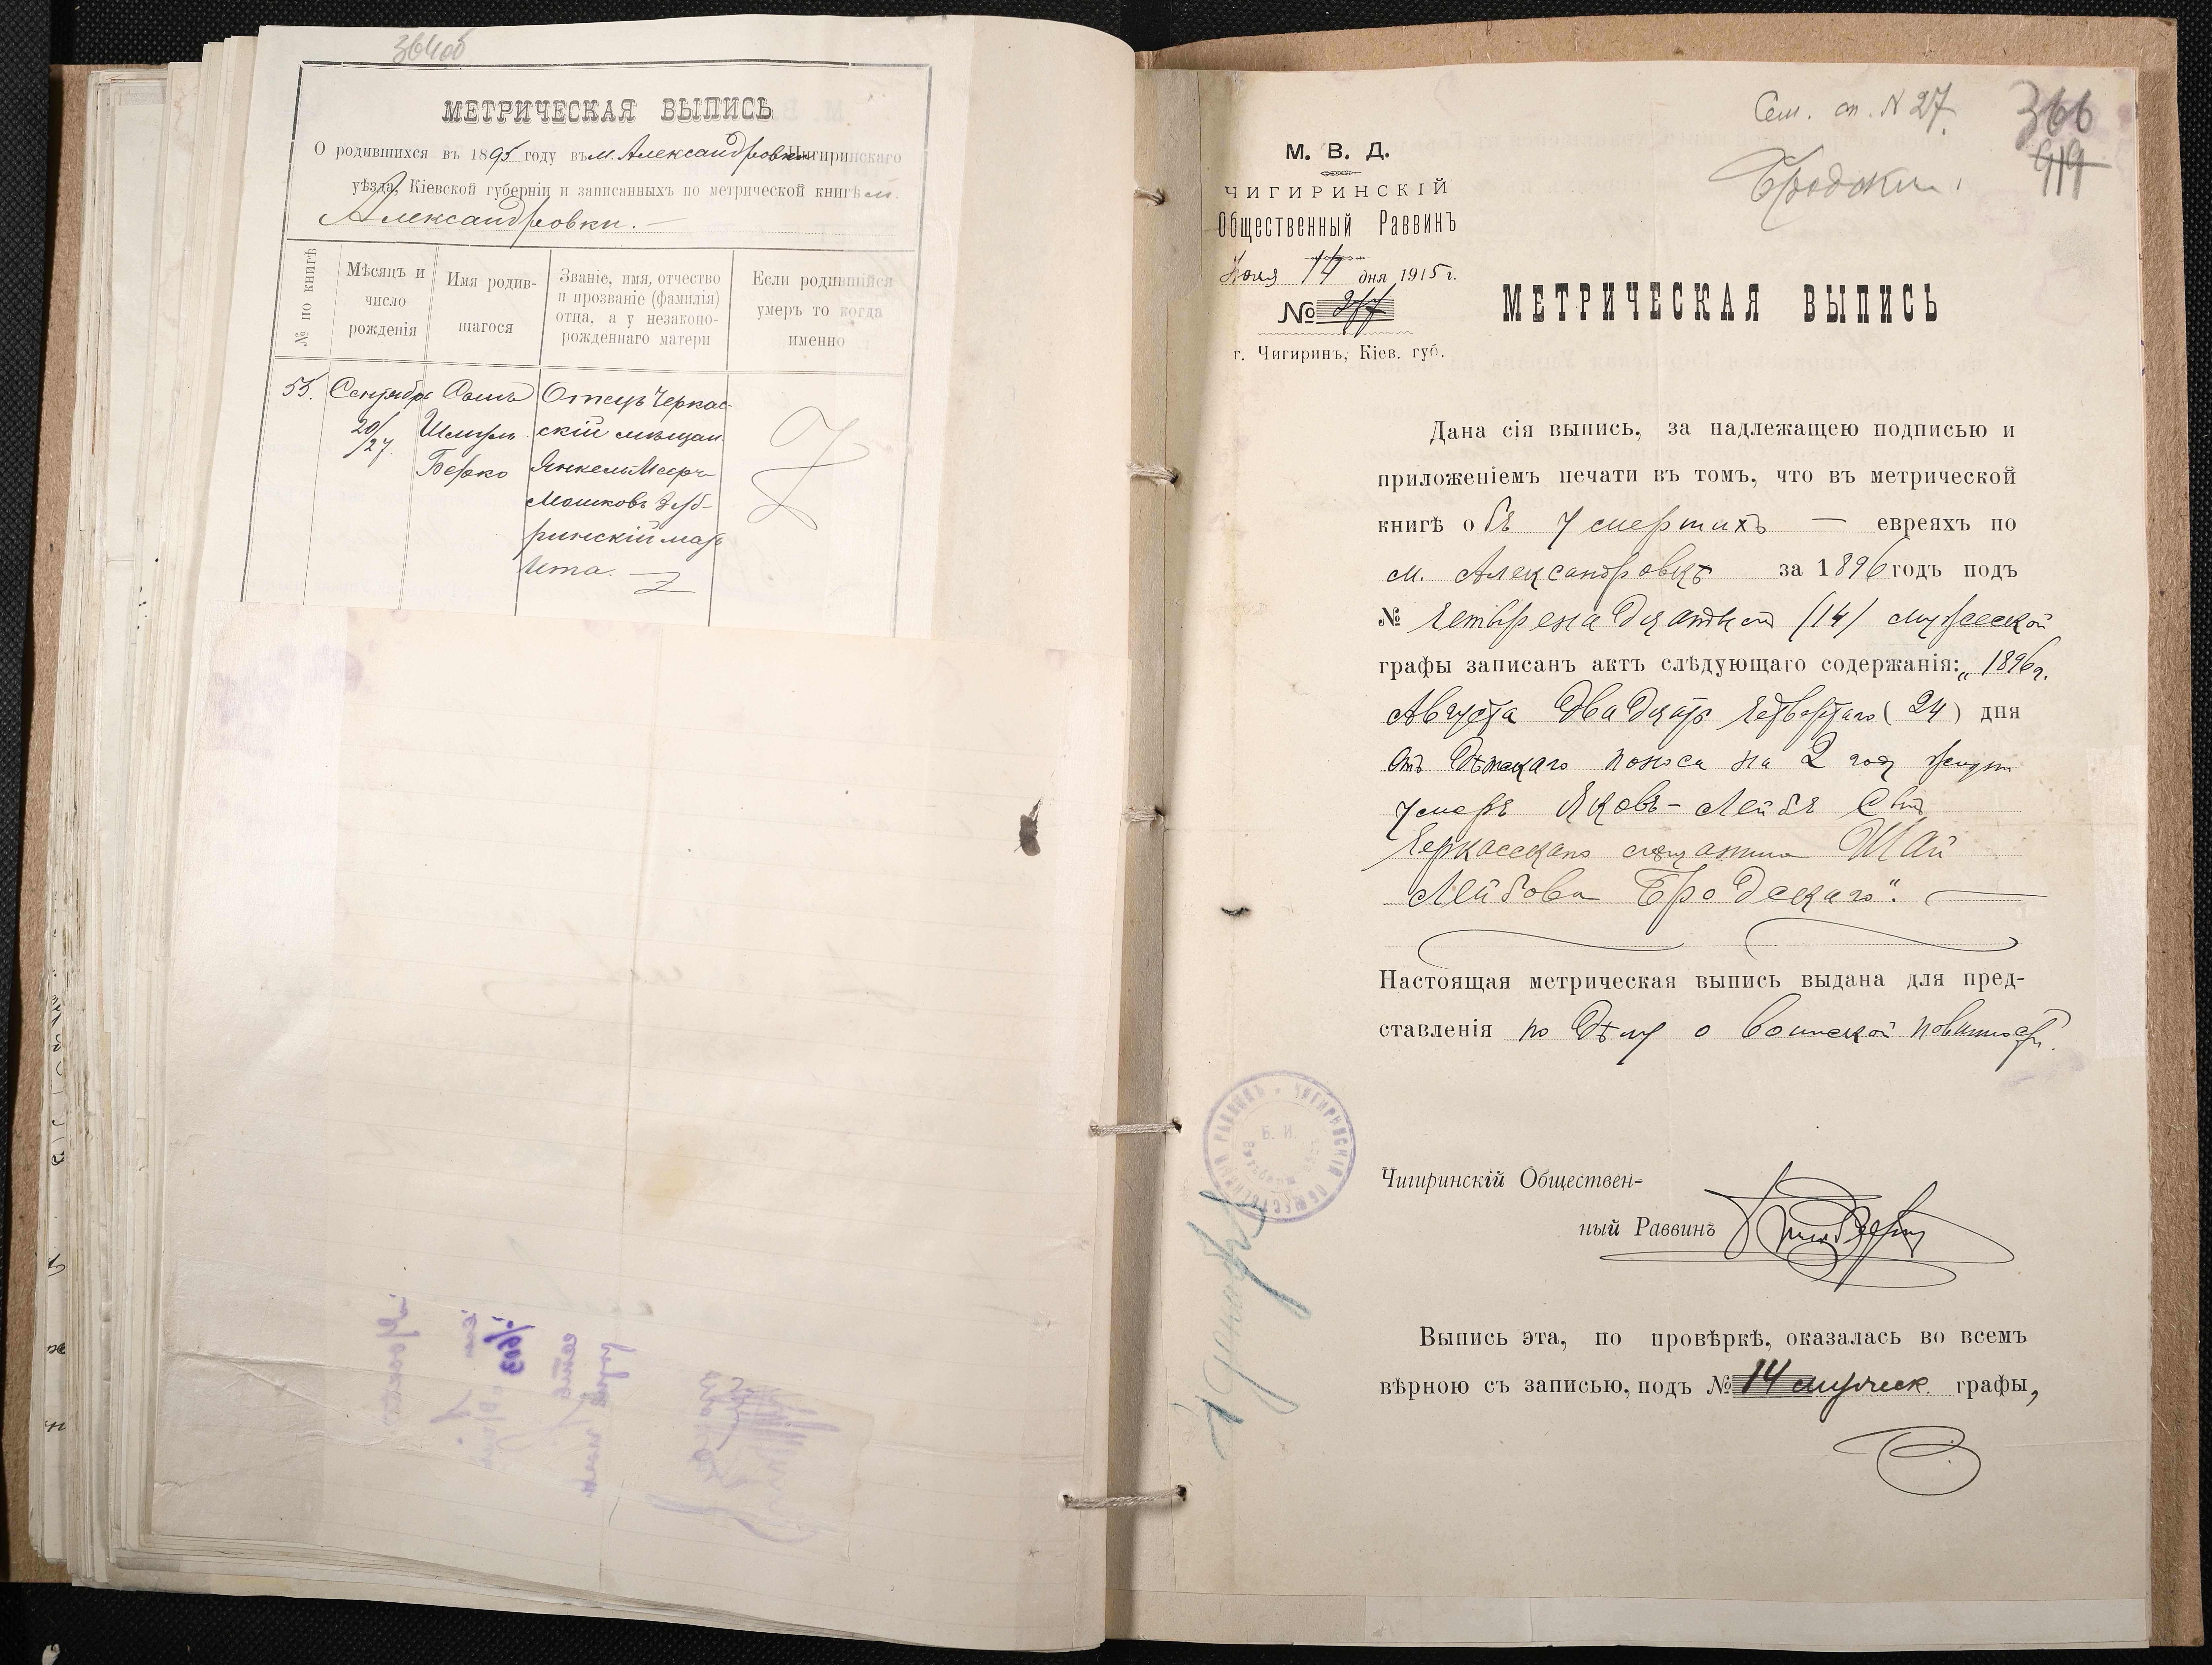 364об
МЕТРИЧЕСКАЯ ВЫПИСЬ
О родившихся въ 1895 году въ м. Александровки Чигиринскаго
уѣзда, Кіевской губерніи и записанныхъ по метрической книгѣ м.
Александровки.
№ по книгѣ
Мѣсяцъ и число рожденія
Имя родившагося
Званіе, имя, отчество
и прозваніе (фамилія)
отца, а у незаконо-
рожденнаго матери
Если родившійся
умеръ то когда
именно
55. Сентября Сынъ Отецъ Черкас-
20/27. Шмуль- скій мѣщан.
Берко Янкель Меер-
Мошковъ
ринскій мать
Ита.
Сем. сп. N 27.
366
919
Бродскій
М. В. Д.
ЧИГИРИНСКІЙ
Общественный Раввинъ
14 дня 1915 г.
№ 277
г. Чигиринъ, Кіев. губ.
МЕТРИЧЕСКАЯ ВЫПИСЬ
Дана сія выпись, за надлежащею подписью и
приложеніемъ печати въ томъ, что въ метрической
книгѣ объ умершихъ — евреяхъ по
м. Александровкѣ за 1896 годъ подъ
№ четырнадцатым /14/ мужеской
графы записанъ актъ слѣдующаго содержанія: „1896 г.
Августа двадцать четвертаго (24) дня
отъ дѣтскаго поноса на 2 году жизни
умеръ Яковъ-Лейбъ сынъ
Черкасскаго мѣщанина Шаи
Лейбова Бродскаго".
Настоящая метрическая выпись выдана для пред-
ставленія по дѣлу о воинской повинности.
ЧИГИРИНСКІЙ ОБЩЕСТВЕННЫЙ РАВВИНЪ
Б. И.
Чигиринскій Обществен-
ный Раввинъ
Выпись эта, по провѣркѣ, оказалась во всемъ
вѣрною съ записью, подъ № 14 мужеск. графы,